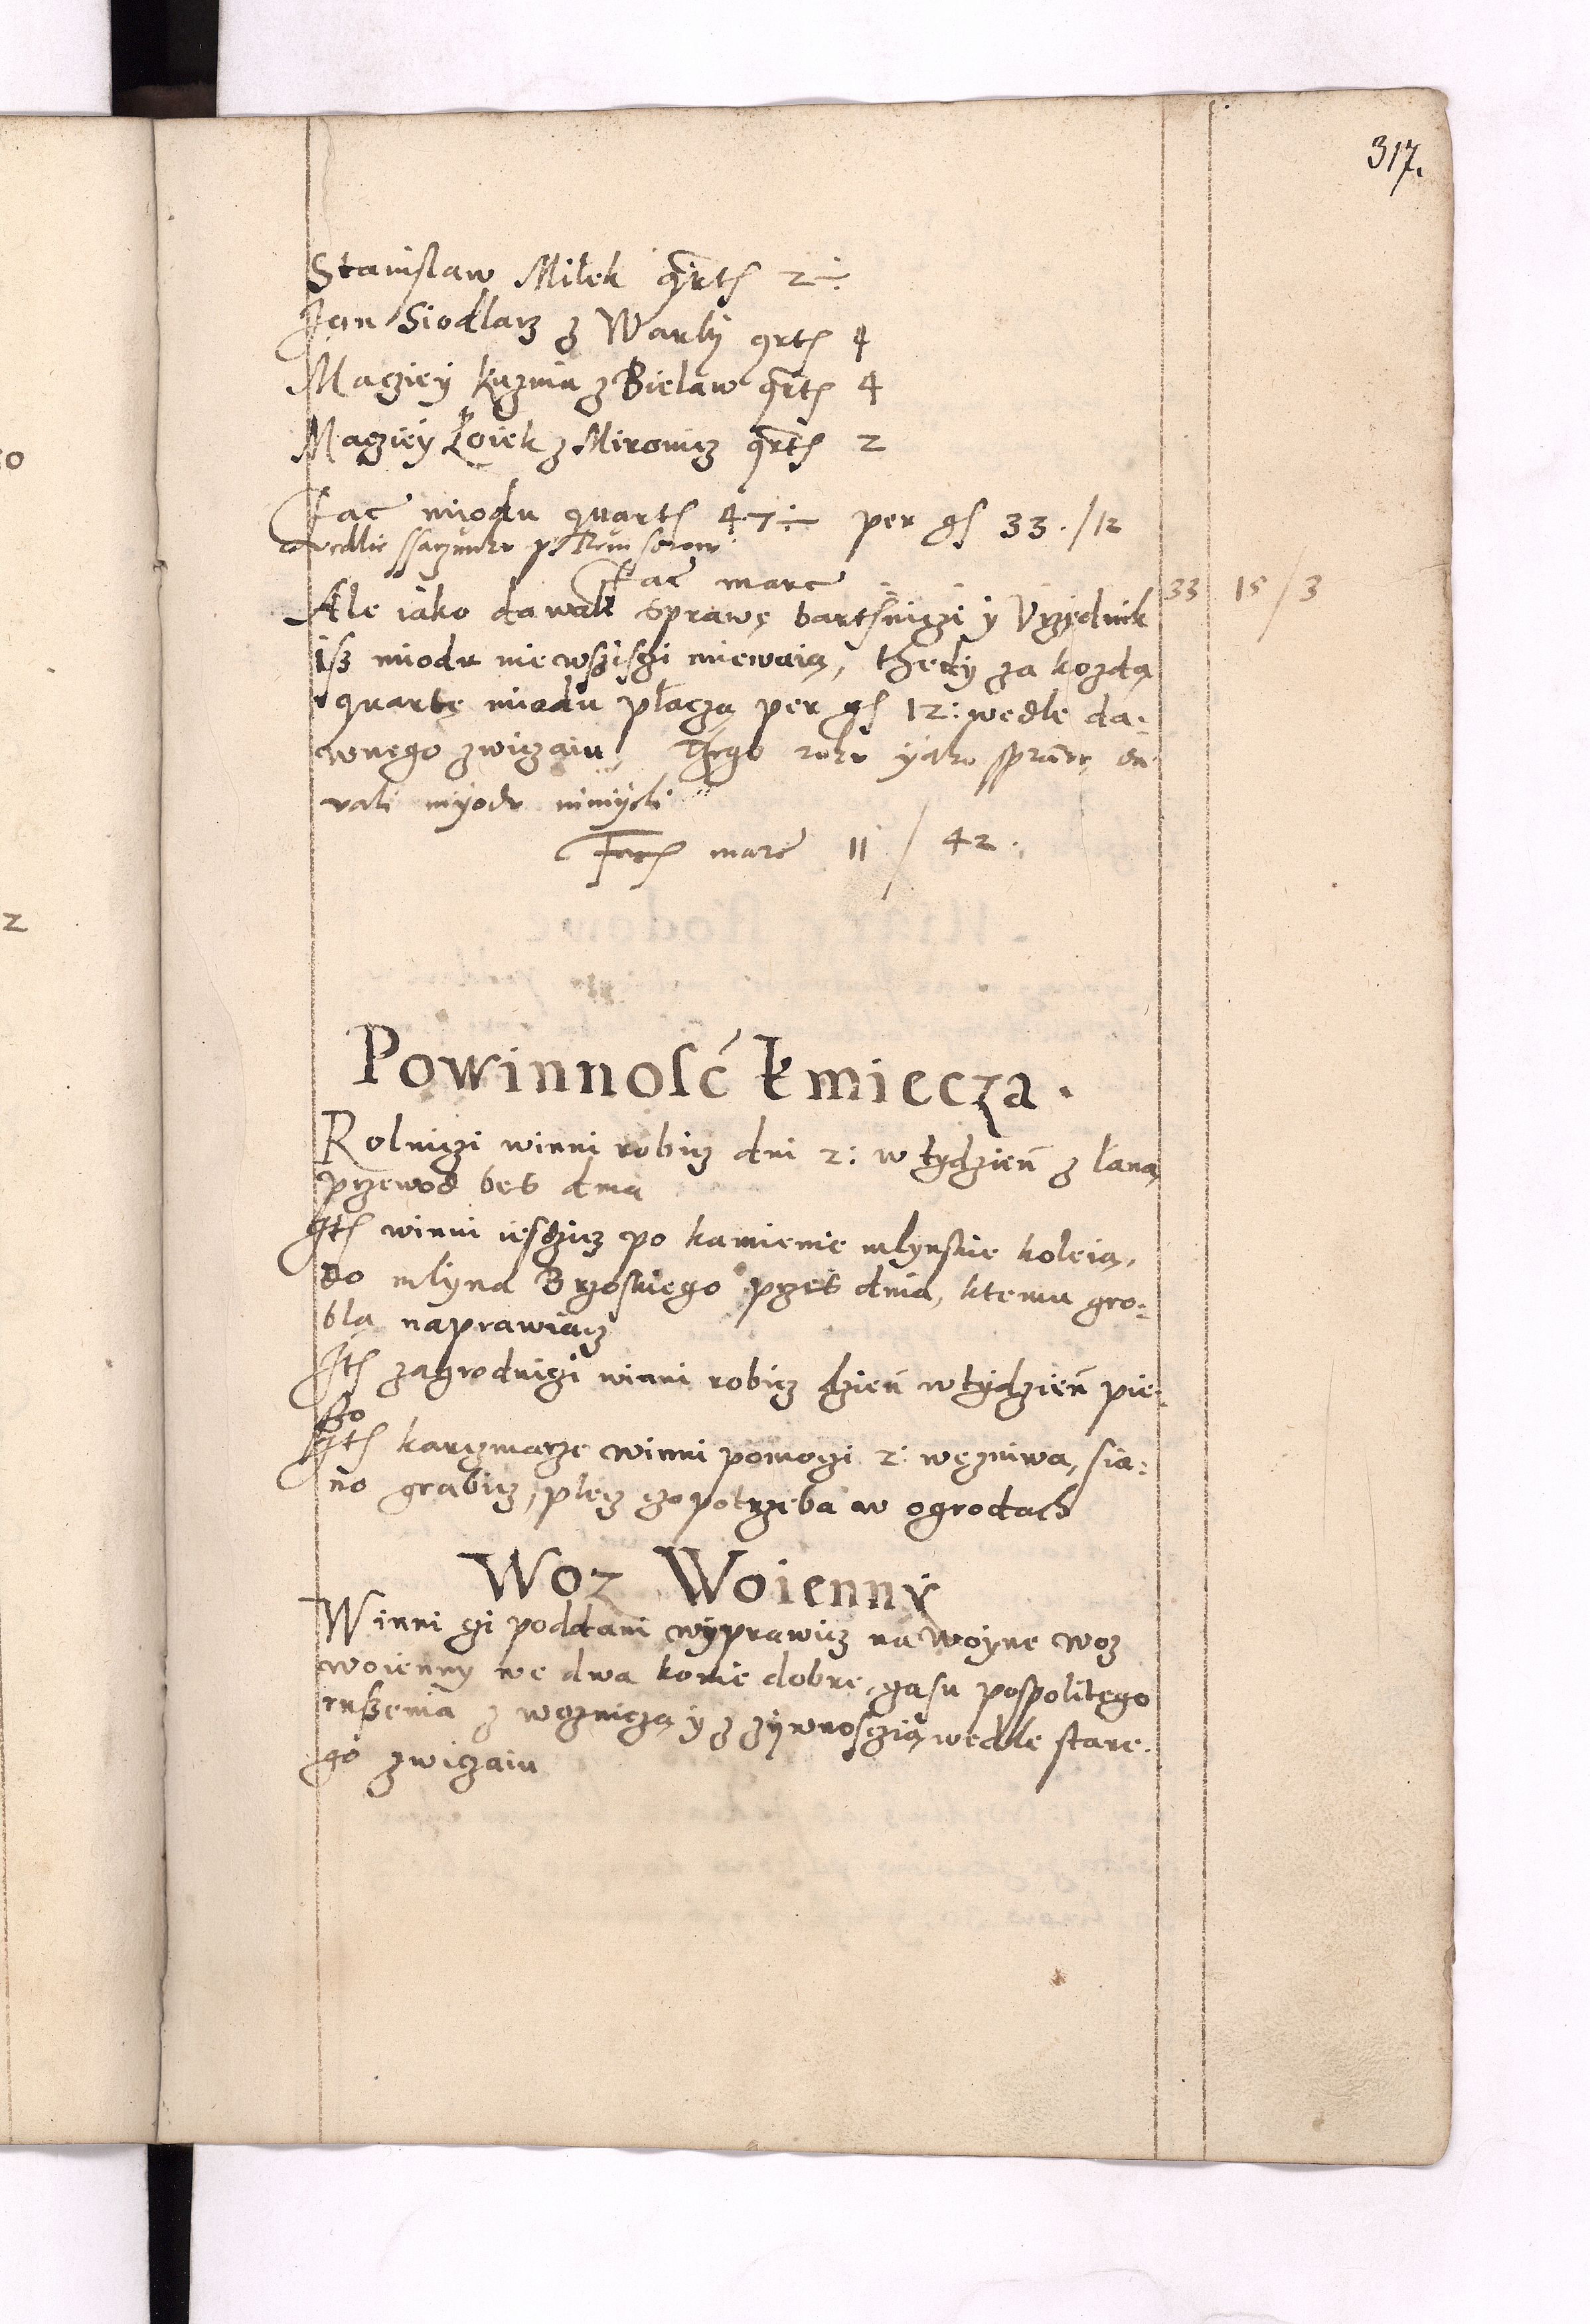 317.
Stanislaw Miłek qrts 2÷
Jan Siodlarz z Warly qrts 4
Macziey Kuzmia z Bielaw qrts 4
Macziey Łoiek z Mironicz qrts 2
Fac miodu quarts 47÷ per gs 33./12
wedlie ssaczunku
Fac marc 33 15/3
Ale iako dawali sprawę bartniczi y Vrzędnik
isz miodu nie wszisczi miewaią, thedy za kozdą
quartę miodu płaczą per gs 12: wedle da-
wnego zwiczaiu, Thego roku yako sprawę da
vali myodv nimyeli
Facs marc 11 / 42.
Powinnosć kmiecza.
Rolniczi winni robicz dni 2: w tydzień z łaną
przewod bes dnia
Its winni iesdzicz po kamienie młynskie koleią,
do młyna Brzoskiego przes dnia, ktemu gro-
blą naprawiacz
Its zagrodniczi winni robicz dzień w tydzień pie-
szo
Its karczmarze winni pomogi 2: węzniwa, sia-
no grabicz, plecz czo potrzeba w ogrodach
Woz Woienny
Winni czi poddani wyprawicz na woynę woz
woienny we dwa konie dobre, czasu pospolitego
ruszenia z woznyczą y z zywnosczią wedle stare-
go zwiczaiu